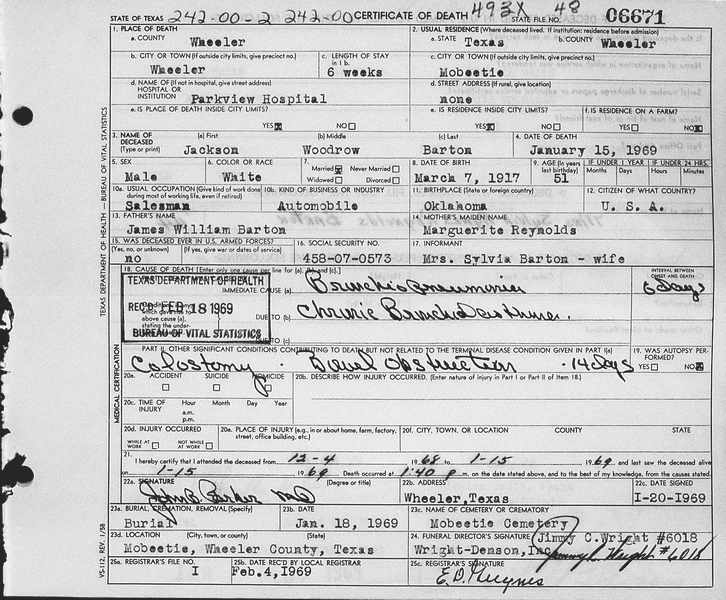 STATE OF TEXAS 242-00-2 242-00 CERTIFICATE OF DEATH 493X 48 STATE FILE NO. 06671
1. PLACE OF DEATH 2. USUAL RESIDENCE (Where deceased lived. If institution: residence before admission)
a. COUNTY Wheeler a. STATE Texas b. COUNTY Wheeler
b. CITY OR TOWN (If outside city limits, give precinct no.) c. LENGTH OF STAY in 1 b. c. CITY OR TOWN (If outside city limits, give precinct no.)
Wheeler 6 weeks Mobeetie
d. NAME OF (If not in hospital, give street address) d. STREET ADDRESS (If rural, give location)
HOSPITAL OR INSTITUTION Parkview Hospital none
e. IS PLACE OF DEATH INSIDE CITY LIMITS? e. IS RESIDENCE INSIDE CITY LIMITS? f. IS RESIDENCE ON A FARM?
YES NO YES NO YES NO
3. NAME OF DECEASED (Type or print) (a) First (b) Middle (c) Last 4. DATE OF DEATH
Jackson Woodrow Barton January 15, 1969
5. SEX 6. COLOR OR RACE 7. Married Never Married 8. DATE OF BIRTH 9. AGE (In years last birthday) IF UNDER 1 YEAR IF UNDER 24 HRS.
Male White Widowed Divorced March 7, 1917 51 Months Days Hours Min.
10a. USUAL OCCUPATION (Give kind of work done during most of working life, even if retired) 10b. KIND OF BUSINESS OR INDUSTRY 11. BIRTHPLACE (State or foreign country) 12. CITIZEN OF WHAT COUNTRY?
Salesman Automobile Oklahoma U. S. A.
13. FATHER'S NAME 14. MOTHER'S MAIDEN NAME
James William Barton Marguerite Reynolds
15. WAS DECEASED EVER IN U.S. ARMED FORCES? 16. SOCIAL SECURITY NO. 17. INFORMANT
(Yes, no, or unknown) (If yes, give war or dates of service)
no 458-07-0573 Mrs. Sylvia Barton - wife
18. CAUSE OF DEATH [Enter only one cause per line for (a), (b), and (c).] INTERVAL BETWEEN ONSET AND DEATH
TEXAS DEPARTMENT OF HEALTH IMMEDIATE CAUSE (a) Bronchio pneumonia 6 days
REC'D FEB 18 1969 DUE TO (b) Chronic
above cause (a), stating the under-
BUREAU OF VITAL STATISTICS DUE TO (c)
PART II. OTHER SIGNIFICANT CONDITIONS CONTRIBUTING TO DEATH BUT NOT RELATED TO THE TERMINAL DISEASE CONDITION GIVEN IN PART I(a) 19. WAS AUTOPSY PERFORMED?
Colostomy - Bowel obstruction - 14 days YES NO
20a. ACCIDENT SUICIDE HOMICIDE 20b. DESCRIBE HOW INJURY OCCURRED. (Enter nature of injury in Part I or Part II of Item 18.)
20c. TIME OF INJURY Hour Month Day Year
a.m.
p.m.
20d. INJURY OCCURRED 20e. PLACE OF INJURY (e.g., in or about home, farm, factory, street, office building, etc.) 20f. CITY, TOWN, OR LOCATION COUNTY STATE
WHILE AT WORK NOT WHILE AT WORK
21. I hereby certify that I attended the deceased from 12-4 1968 to 1-15 1969 and last saw the deceased alive
on 1-15 1969 Death occurred at 1:40 p m. on the date stated above, and to the best of my knowledge, from the causes stated.
22a. SIGNATURE (Degree or title) 22b. ADDRESS 22c. DATE SIGNED
John B. Parker MD Wheeler, Texas I-20-I969
23a. BURIAL, CREMATION, REMOVAL (Specify) 23b. DATE 23c. NAME OF CEMETERY OR CREMATORY
Burial Jan. 18, 1969 Mobeetie Cemetery
23d. LOCATION (City, town, or county) (State) 24. FUNERAL DIRECTOR'S SIGNATURE Jimmy C. Wright #6018
Mobeetie, Wheeler County, Texas Wright-Denson, Inc. Jimmy C. Wright #6018
25a. REGISTRAR'S FILE NO. 25b. DATE REC'D BY LOCAL REGISTRAR 25c. REGISTRAR'S SIGNATURE
I Feb. 4, I969
TEXAS DEPARTMENT OF HEALTH — BUREAU OF VITAL STATISTICS
MEDICAL CERTIFICATION
VS-112, REV. 1/58